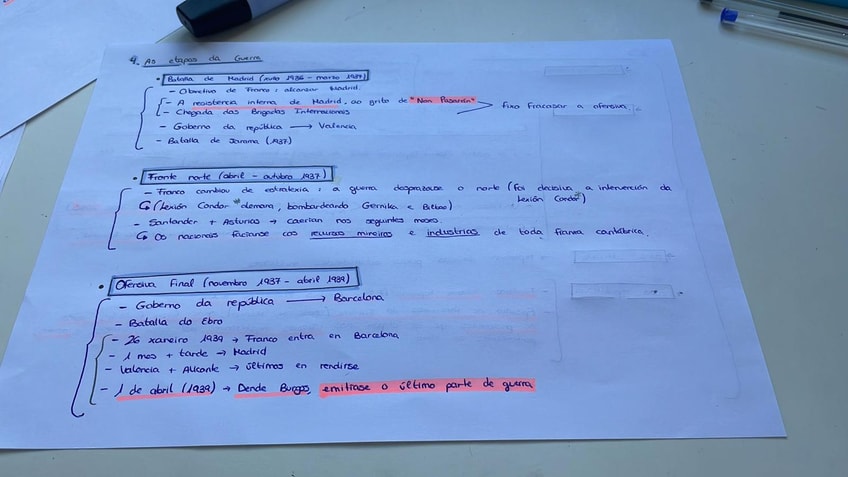 4. As etapas da Guerra
• Batalla de Madrid (xullo 1936 - marzo 1937)
- Obxectivo de Franco: alcanzar Madrid.
- A resistencia interna de Madrid, ao grito de "Non Pasarán"
- Chegada das Brigadas Internacionais
fixo fracasar a ofensiva
- Goberno da república → Valencia
- Batalla de Jarama (1937)
• Fronte norte (abril - outubro 1937)
- Franco cambiou de estratexia: a guerra desprazouse o norte (foi decisiva a intervención da Lexión Condor*)
↳ (Lexión Condor* alemana, bombardeando Gernika e Bilbao)
- Santander + Asturias → caerían nos seguintes meses.
↳ Os nacionais facíanse cos recursos mineiros e industrias de toda franxa cantábrica.
• Ofensiva Final (novembro 1937 - abril 1939)
- Goberno da república → Barcelona
- Batalla do Ebro
- 26 xaneiro 1939 → Franco entra en Barcelona
- 1 mes + tarde → Madrid
- Valencia + Alicante → últimos en rendirse
- 1 de abril (1939) → Dende Burgos, emitiase o último parte de guerra